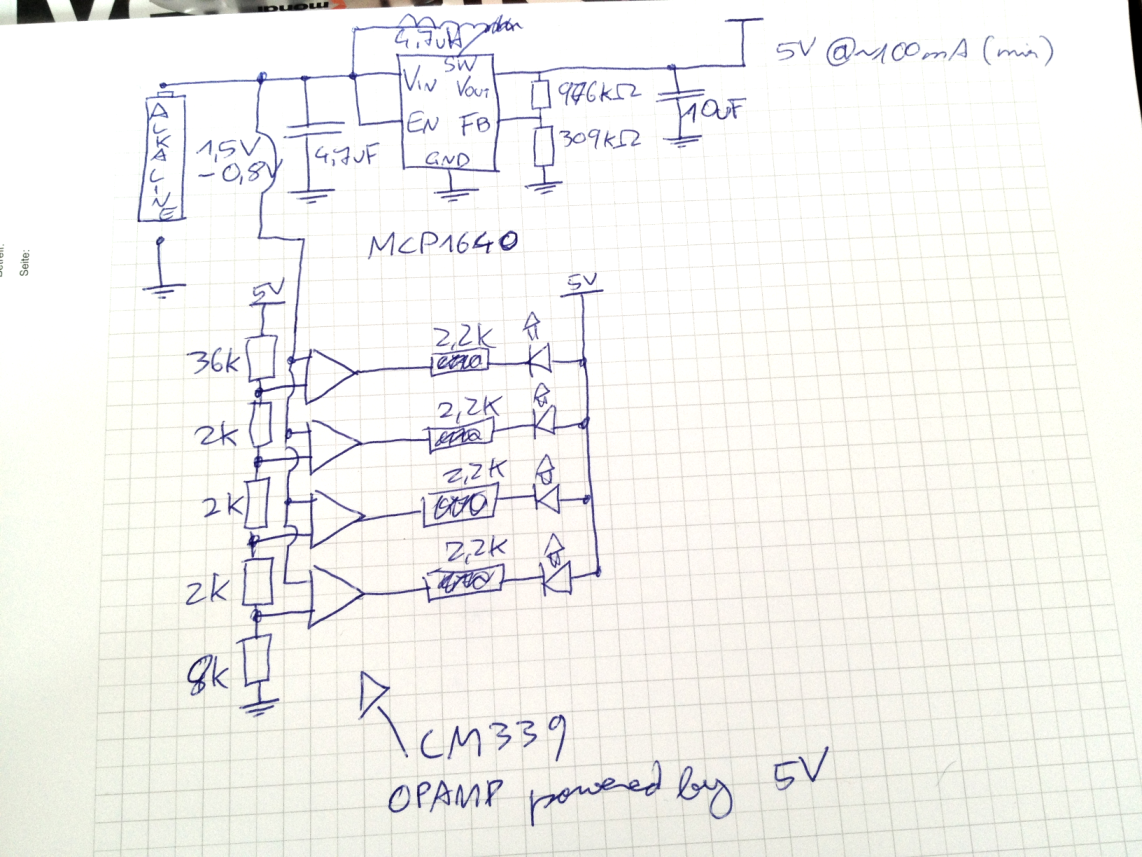 monat
Seite:
4,7uH
SW
5V @~100mA (min)
VIN
VOUT
976kΩ
10uF
ALKALINE
1,5V
-0,8V
4,7uF
EN
FB
309kΩ
GND
MCP1640
5V
5V
36k
2,2K
2k
2,2K
2k
2,2K
2k
2,2K
8k
CM339
OPAMP powered by 5V